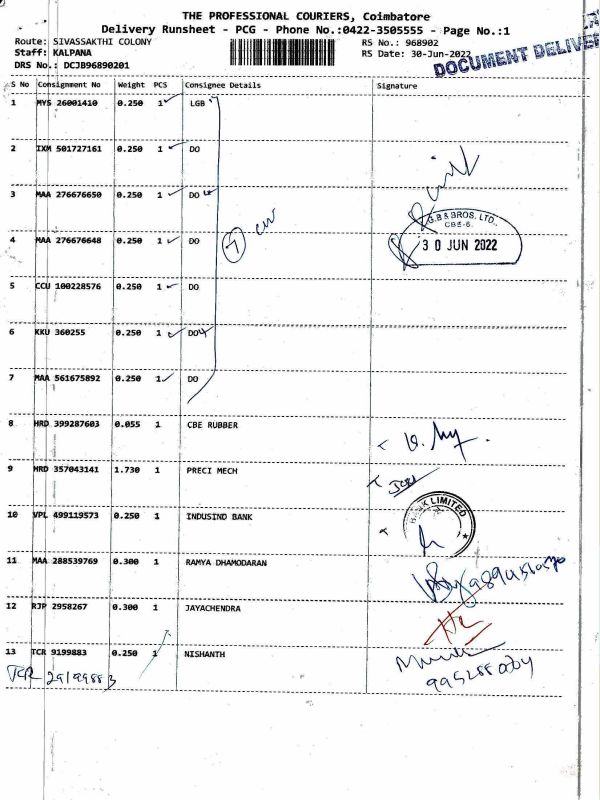 THE PROFESSIONAL COURIERS, Coimbatore
Delivery Runsheet - PCG - Phone No.:0422-3505555 - Page No.:1
Route: SIVASSAKTHI COLONY
Staff: KALPANA
DRS No.: DCJB96890201
RS No.: 968902
RS Date: 30-Jun-2022
DOCUMENT DELIVER
S No Consignment No Weight PCS Consignee Details Signature
1 MYS 26001410 0.250 1 LGB
2 IXM 501727161 0.250 1 DO
3 MAA 276676650 0.250 1 DO
4 MAA 276676648 0.250 1 DO
7
G.B & BROS. LTD.,
CBE-6.
30 JUN 2022
5 CCU 100228576 0.250 1 DO
6 KKU 360255 0.250 1 DO
7 MAA 561675892 0.250 1 DO
8 HRD 399287603 0.055 1 CBE RUBBER
9 HRD 357043141 1.730 1 PRECI MECH
10 VPL 499119573 0.250 1 INDUSIND BANK
BANK LIMITED
11 MAA 288539769 0.300 1 RAMYA DHAMODARAN
12 RJP 2958267 0.300 1 JAYACHENDRA
13 TCR 9199883 0.250 1 NISHANTH